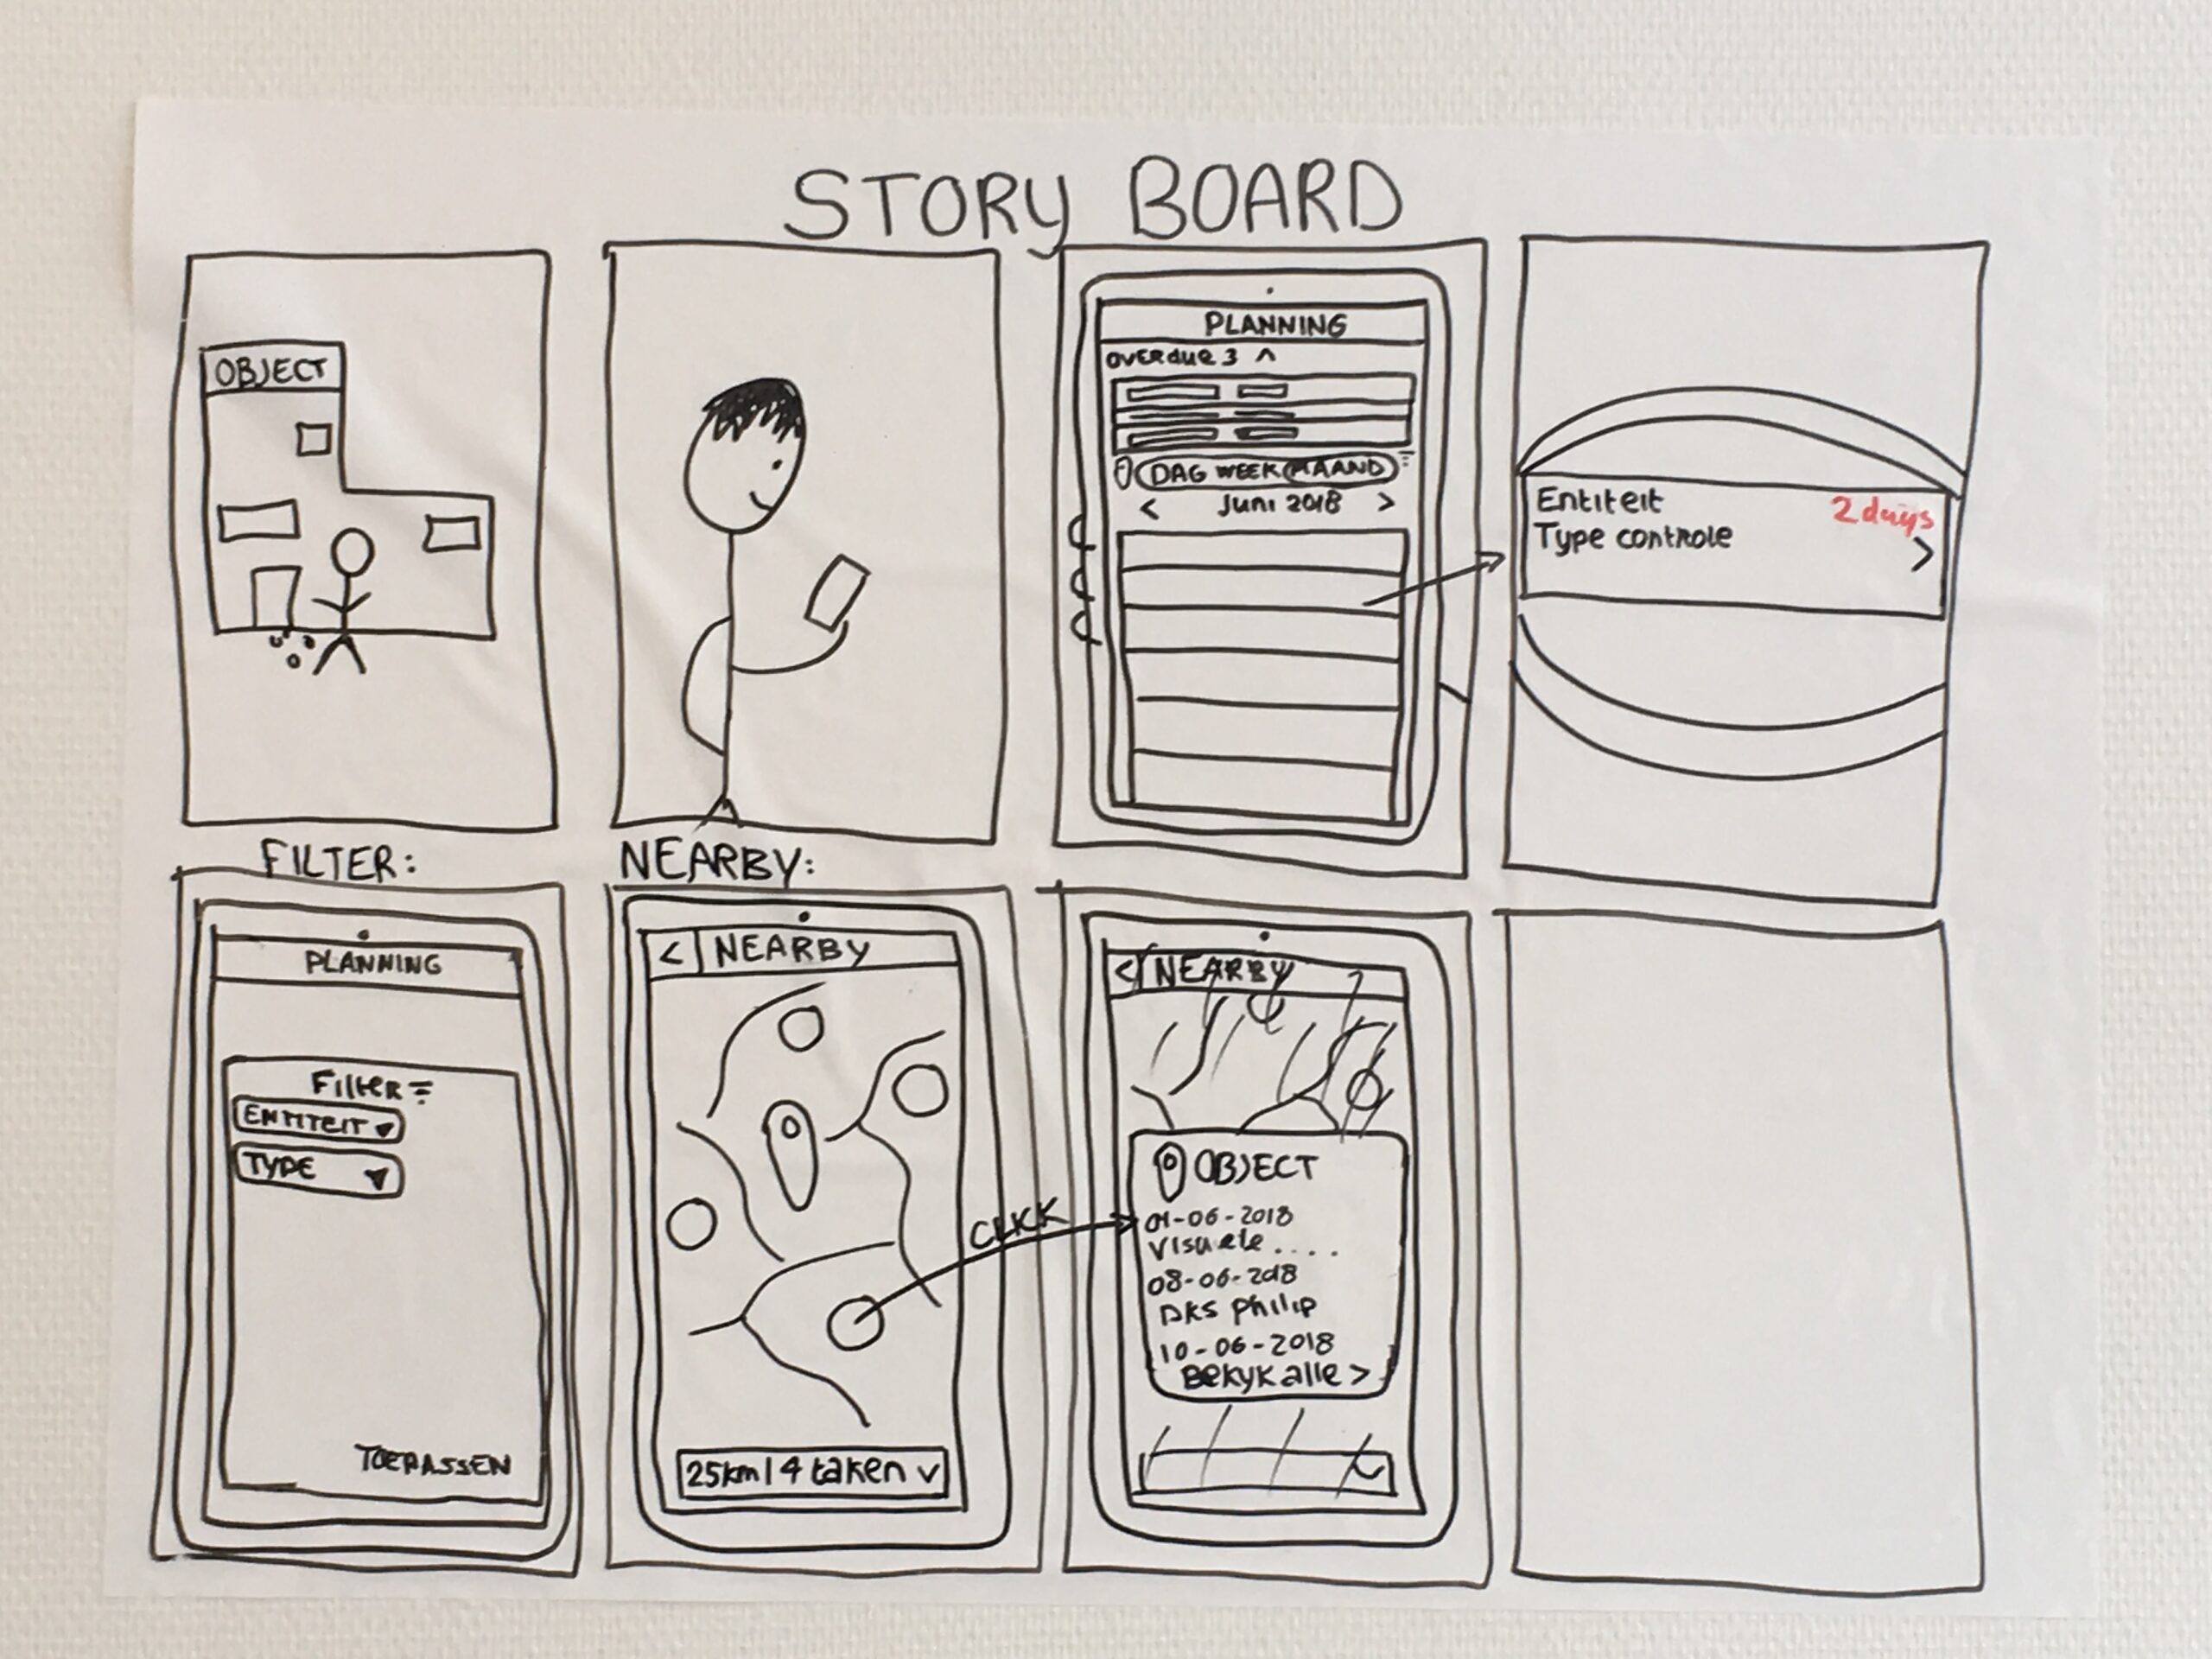 STORY BOARD
OBJECT
PLANNING
OVERdue 3 ^
DAG WEEK MAAND
< Juni 2018 >
Entiteit 2 days
Type controle >
FILTER:
PLANNING
Filter
ENTITEIT
TYPE
TOEPASSEN
NEARBY:
< NEARBY
25km | 4 taken v
CLICK
< NEARBY
OBJECT
01-06-2018
Visuele ....
08-06-2018
DKS Philip
10-06-2018
Bekyk alle >